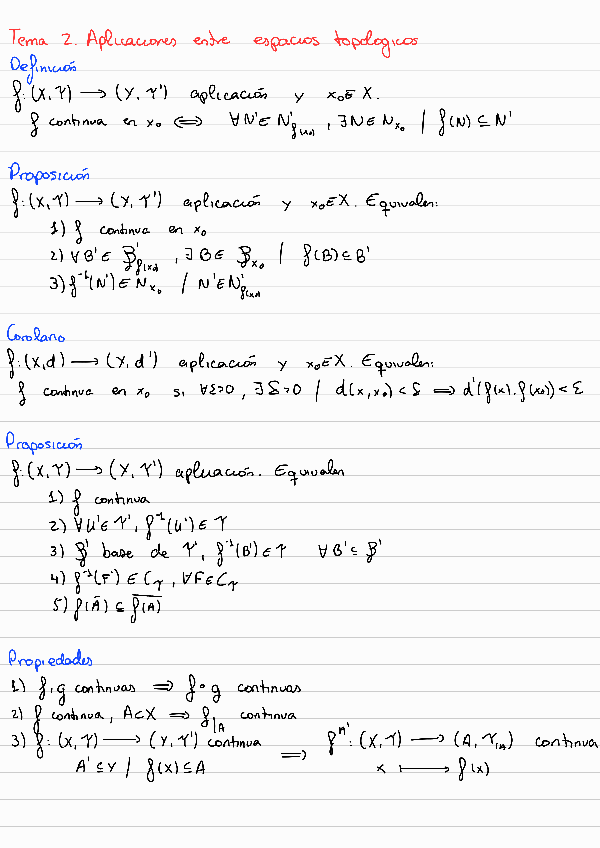 Tema 2. Aplicaciones entre espacios topologicos
Definición
f:(X,τ) ⟶ (Y,τ') aplicación y x₀∈X.
f continua en x₀ ⟺ ∀N'∈N'_{f(x₀)}, ∃N∈N_{x₀} / f(N)⊆N'
Proposición
f:(X,τ) ⟶ (Y,τ') aplicación y x₀∈X. Equivalen:
1) f continua en x₀
2) ∀B'∈β'_{f(x₀)}, ∃B∈β_{x₀} / f(B)⊆B'
3) f⁻¹(N')∈N_{x₀} / N'∈N'_{f(x₀)}
Corolario
f:(X,d) ⟶ (Y,d') aplicación y x₀∈X. Equivalen:
f continua en x₀ si ∀ε>0, ∃δ>0 / d(x,x₀)<δ ⟹ d'(f(x).f(x₀))<ε
Proposición
f:(X,τ) ⟶ (Y,τ') aplicación. Equivalen
1) f continua
2) ∀U'∈τ', f⁻¹(U')∈τ
3) β' base de τ', f⁻¹(B')∈τ ∀B'⊆β'
4) f⁻¹(F')∈C_τ, ∀F∈C_τ
5) f(Ā)⊆\overline{f(A)}
Propiedades
1) f,g continuas ⟹ f∘g continuas
2) f continua, A⊂X ⟹ f_{|A} continua
3) f:(X,τ) ⟶ (Y,τ') continua ⟹ f^{A'}:(X,τ) ⟶ (A,τ_{|A}) continua
A'⊆Y / f(X)⊆A x ⟼ f(x)